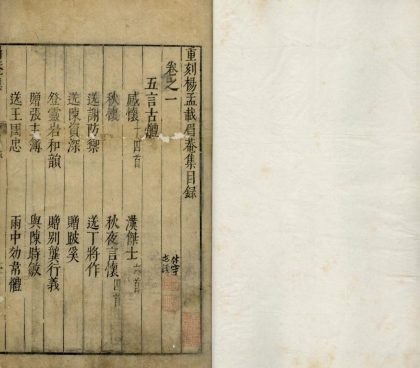 重刻楊孟載眉菴集目錄
卷之一
五言古體
感懷十四首
漢傑士六首
秋懷
秋夜言懷四首
送謝防禦
送丁將作
送陳資深
贈跛奚
登靈岩和韻
贈別龔行義
贈張
與陳時敏
送王國忠
雨中効韋體